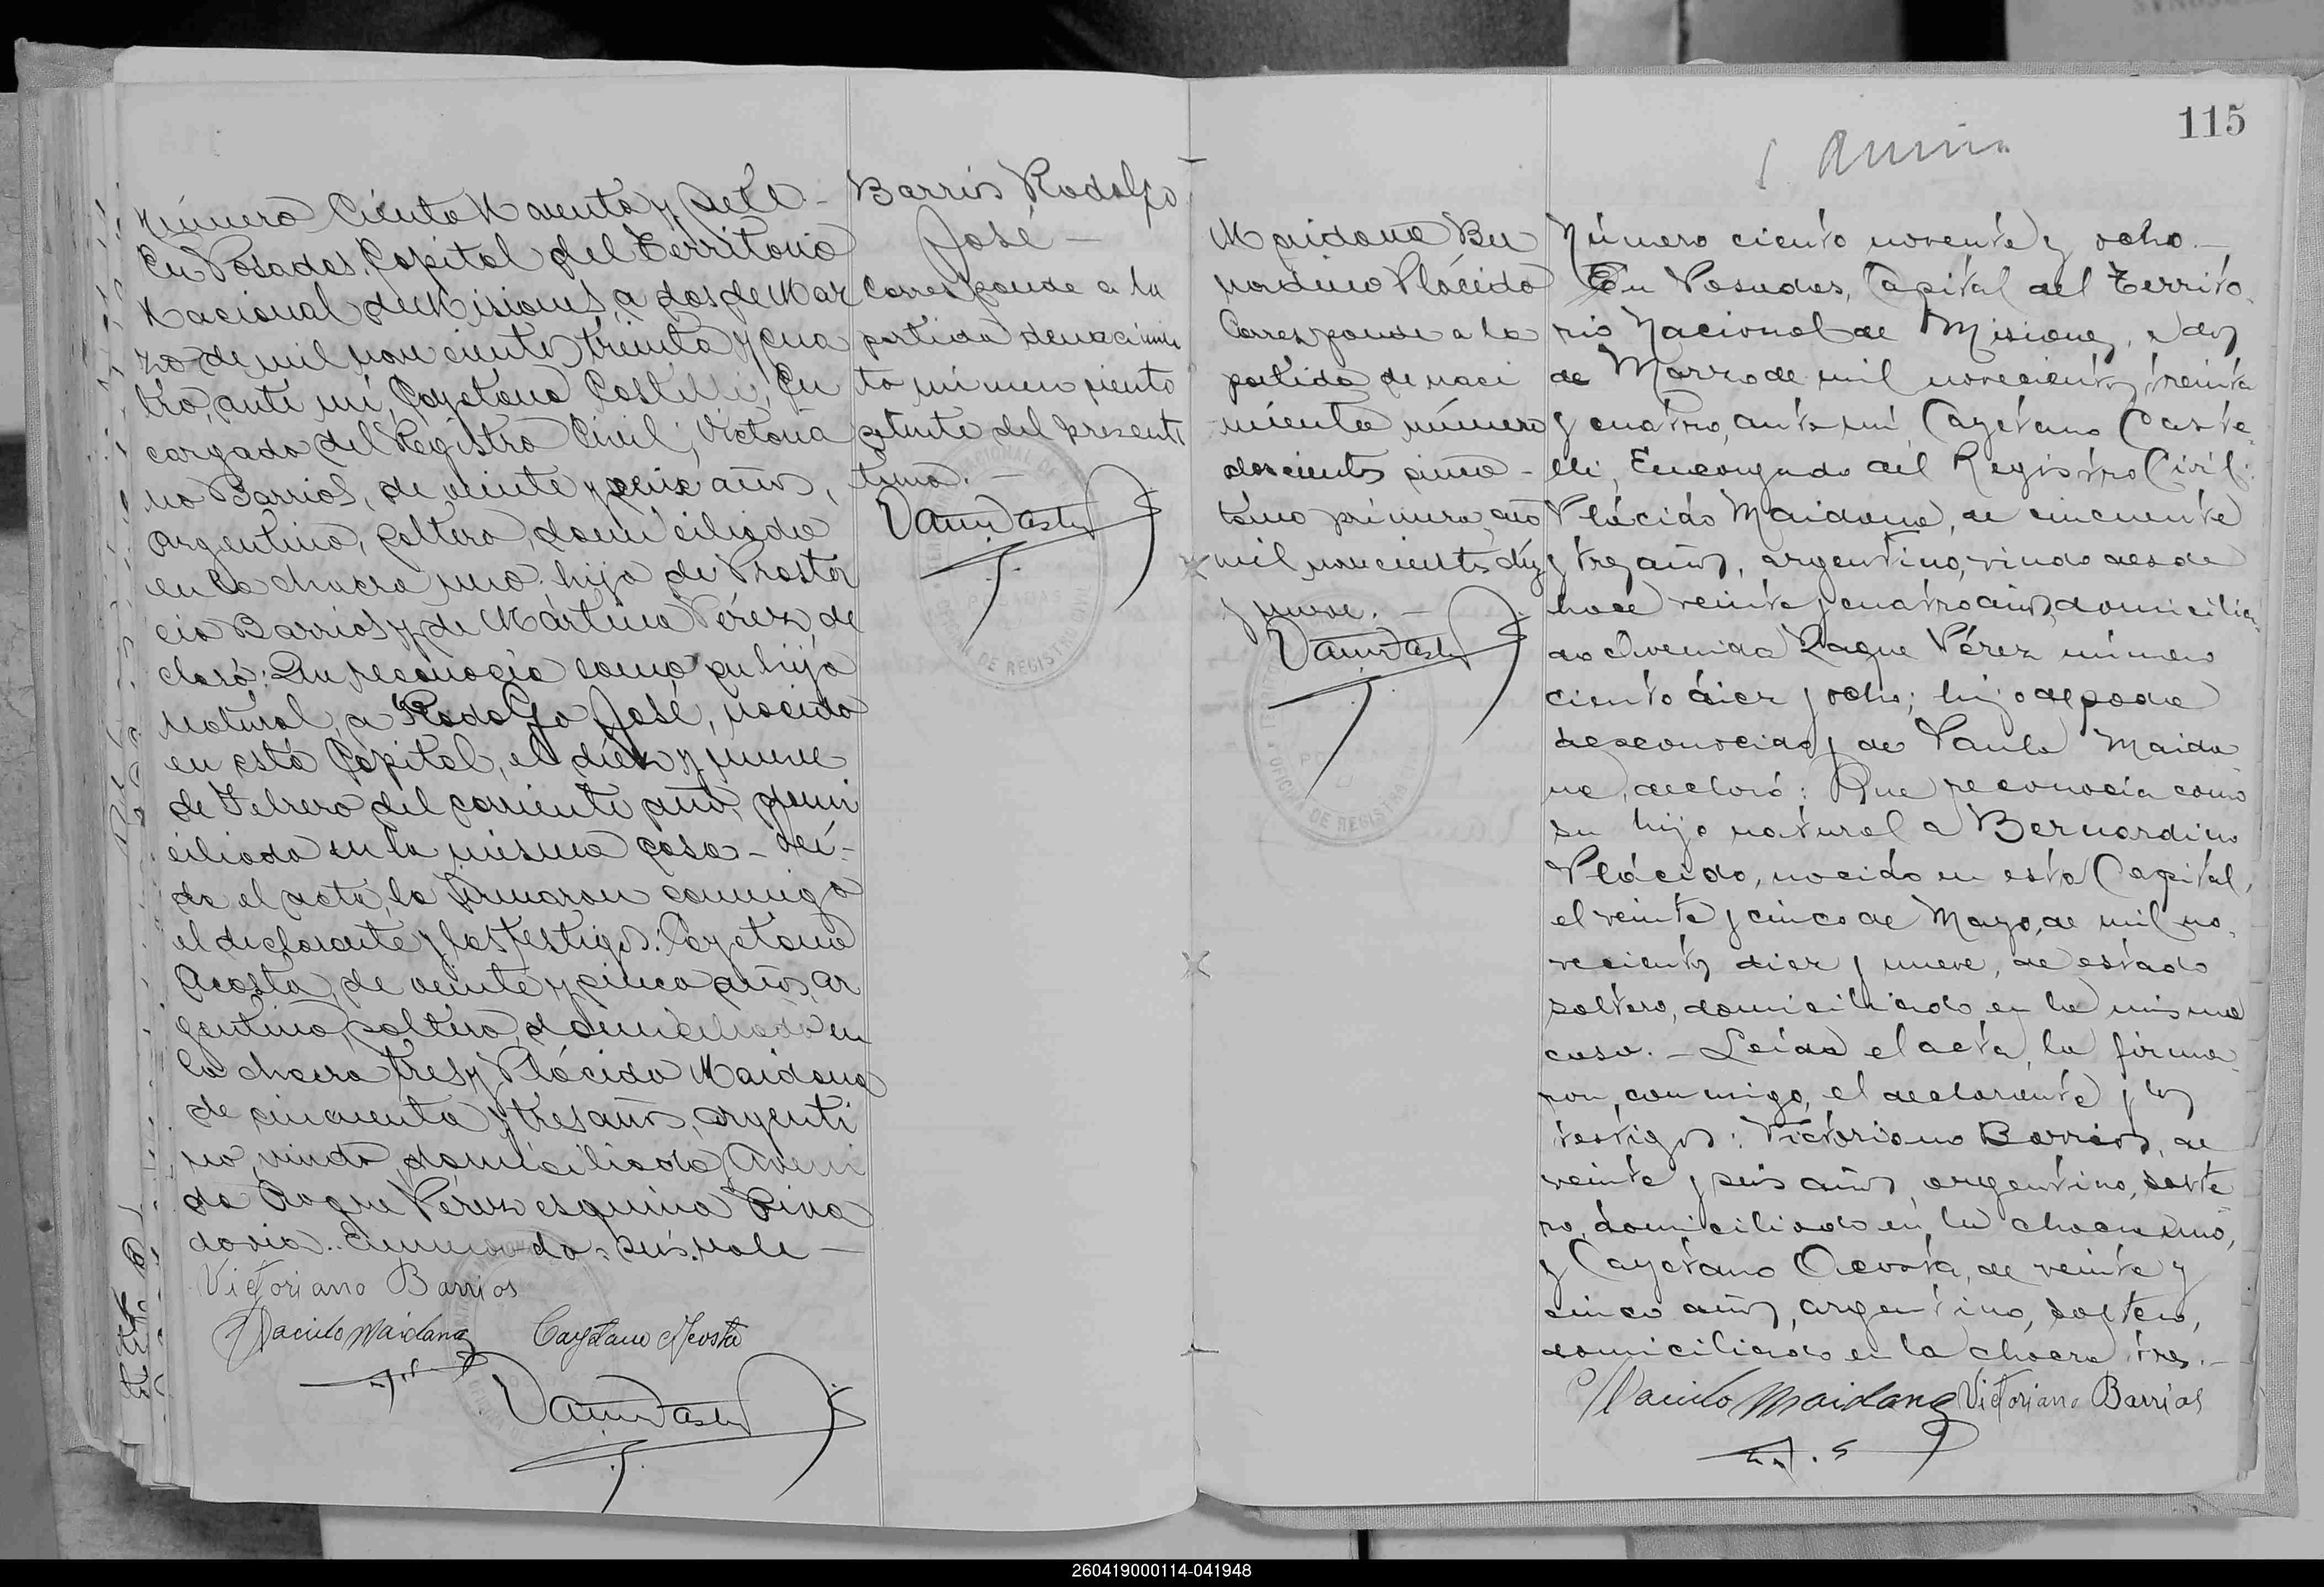 Número Ciento Noventa y Siete.-
En Posadas, Capital del Territorio
Nacional de Misiones, a dos de Mar
zo de mil novecientos treinta y cua
tro, ante mí, Cayetano Castelli, En
cargado del Registro Civil; Victoria
no Barrios, de veinte y seis años,
argentino, soltero, domiciliado
en la chacra uno; hijo de
cio Barrios y de Martina Pérez, de
claró: Que reconocía como su hijo
natural, a Rodolfo José, nacido
en esta Capital, el diez y nueve
de Febrero del corriente año, domi
ciliado en la misma casa.- Leí-
da el acta, la firmaron conmigo
el declarante y los testigos: Cayetano
Acosta, de veinte y cinco años, ar
gentino, soltero, domiciliado en
la chacra tres y Plácido Maidana
de cincuenta y tres años, argenti
no, viudo, domiciliado Aveni
da Roque Pérez esquina Riva
davia.. Enmendado: seis. vale -
Victoriano Barrios
Placido Maidana Cayetano Acosta
Barrios Rodolfo
José -
Corresponde a la
partida de nacimien
to número ciento
setenta del presente
tomo. -
DE REGISTRO CIVIL
115
Maidana Ber
nardino Plácido
Corresponde a la
partida de naci
miento número
doscientos cinco -
tomo primero, año
mil novecientos diez
y nueve. -
OFICINA DE REGISTRO
Número ciento noventa y ocho.-
En Posadas, Capital del Territo
rio Nacional de Misiones, a dos
de Marzo de mil novecientos treinta
y cuatro, ante mí, Cayetano Caste
lli, Encargado del Registro Civil:
Plácido Maidana, de cincuenta
y tres años, argentino, viudo desde
hace veinte y cuatro años, domicilia
do Avenida Roque Pérez número
ciento diez y ocho; hijo de padre
desconocido y de Paula Maida
na, declaró: Que reconocía como
su hijo natural a Bernardino
Plácido, nacido en esta Capital,
el veinte y cinco de Mayo, de mil no
vecientos diez y nueve, de estado
soltero, domiciliado en la misma
casa. - Leída el acta, la firma
ron, conmigo, el declarante y los
testigos: Victoriano Barrios, de
veinte y seis años, argentino, solte
ro, domiciliado en la chacra uno,
y Cayetano Acosta, de veinte y
cinco años, argentino, soltero,
domiciliado en la chacra tres.-
Placido Maidana Victoriano Barrios
260419000114-041948